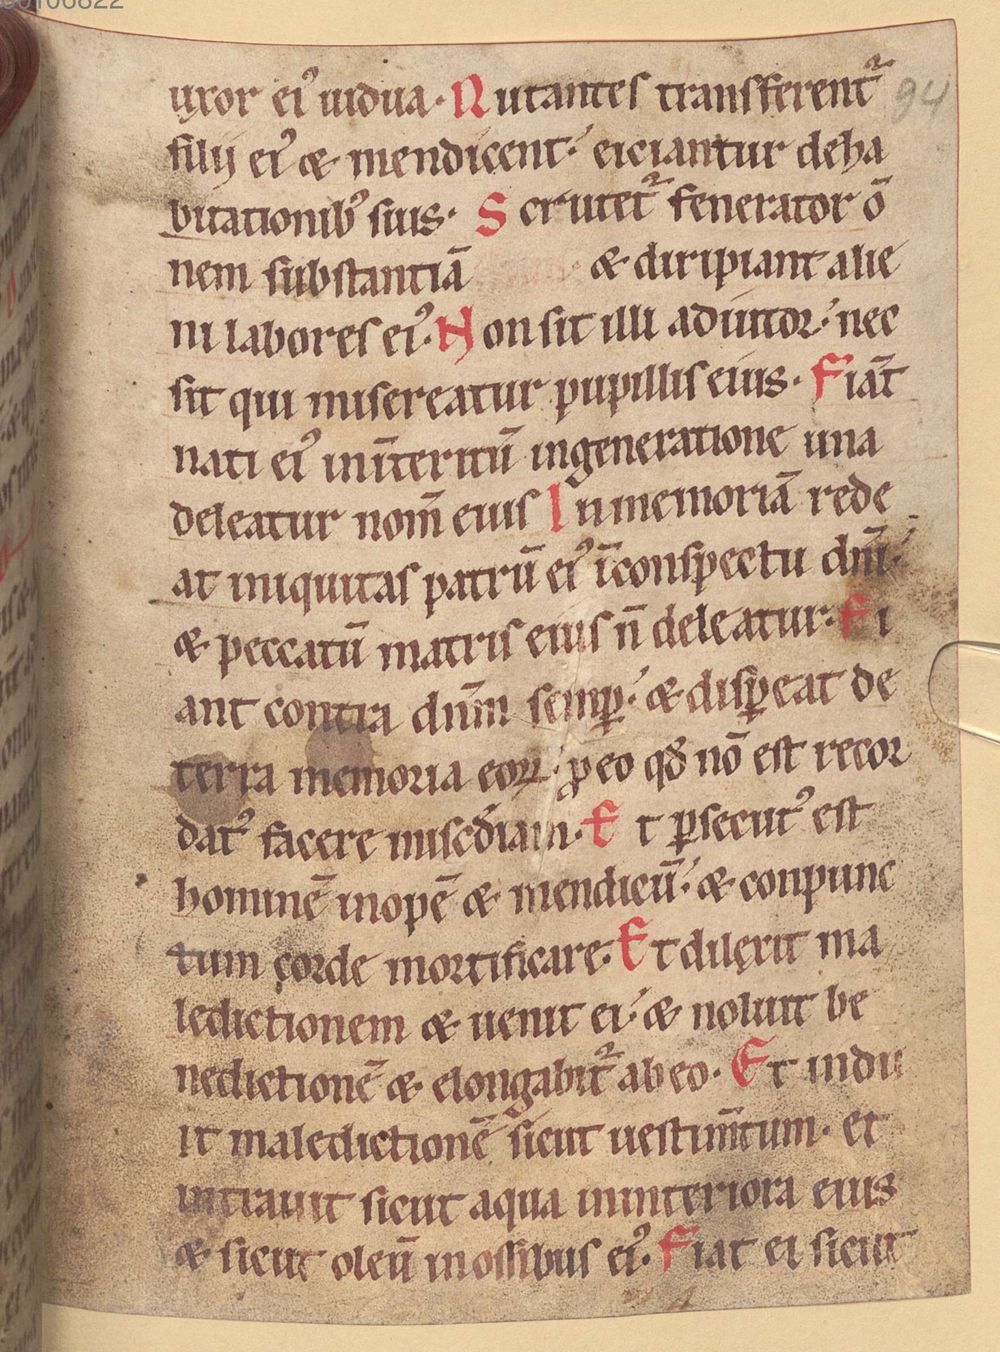 00106822
uxor ei᷒ uidua· Nutantes transferent᷑ 94
filij ei᷒ & mendicent· eiciantur deha
bitationib᷒ suis· Scrutet᷑ fenerator õ
nem substantiā & diripiant alie
ni labores ei᷒· Non sit illi adiutor· nec
sit qui misereatur pupillis eius· Fiāt
nati ei᷒ inīteritū ingeneratione una
deleatur nom̄ eius In memoriā rede
at iniquitas patrū ei᷒ īconspectu dn̄i·
& peccatū matris eius n̄ deleatur· Fi
ant contra dn̄m semꝑ· & disꝑeat de
terra memoria eoꝝ· ꝓ eo qd̄ nō est recor
dat᷒ facere misc̄diam· Et ꝑsecut᷒ est
hominē inopē & mendicū· & conpunc
tum corde mortificare· Et dilexit ma
ledictionem & ueniet ei· & noluit be
nedictionē & elongabit᷑ ab eo· Et indu
it maledictionē sicut uestim̄tum· et
intrauit sicut aqua ininteriora eius
& sicut oleū inossibus ei᷒· Fiat ei sicut